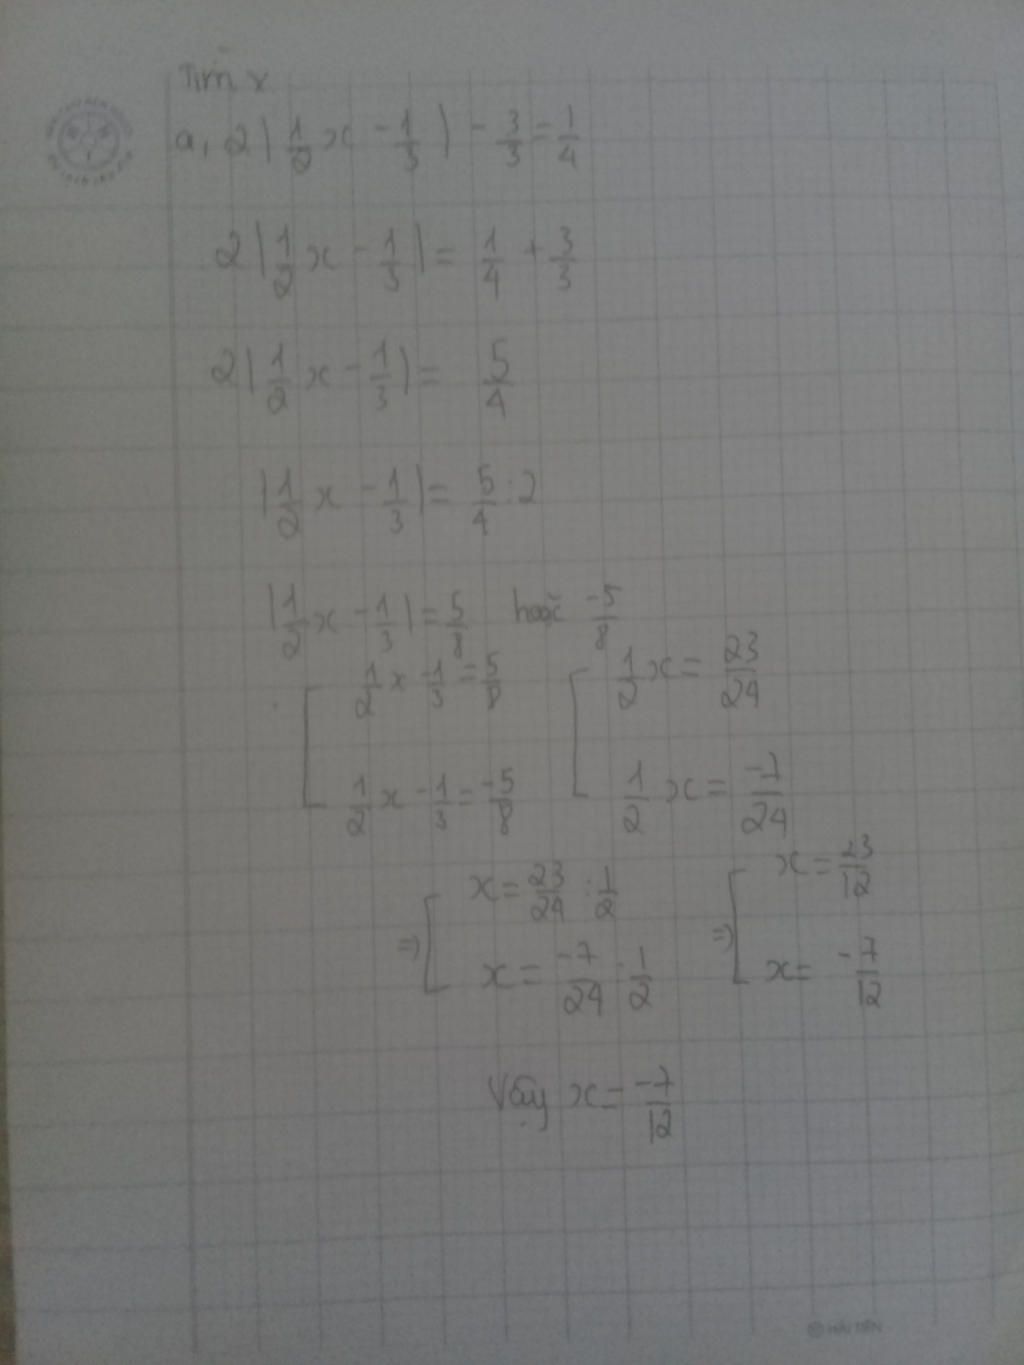 Tìm x
a, 2|1/2 x - 1/3| - 3/3 = 1/4
2|1/2 x - 1/3| = 1/4 + 3/3
2|1/2 x - 1/3| = 5/4
|1/2 x - 1/3| = 5/4 : 2
|1/2 x - 1/3| = 5/8 hoặc -5/8
[ 1/2 x - 1/3 = 5/8 [ 1/2 x = 23/24
1/2 x - 1/3 = -5/8 1/2 x = -7/24
=> [ x = 23/24 : 1/2 => [ x = 23/12
x = -7/24 : 1/2 x = -7/12
Vậy x = -7/12
HẢI TIẾN